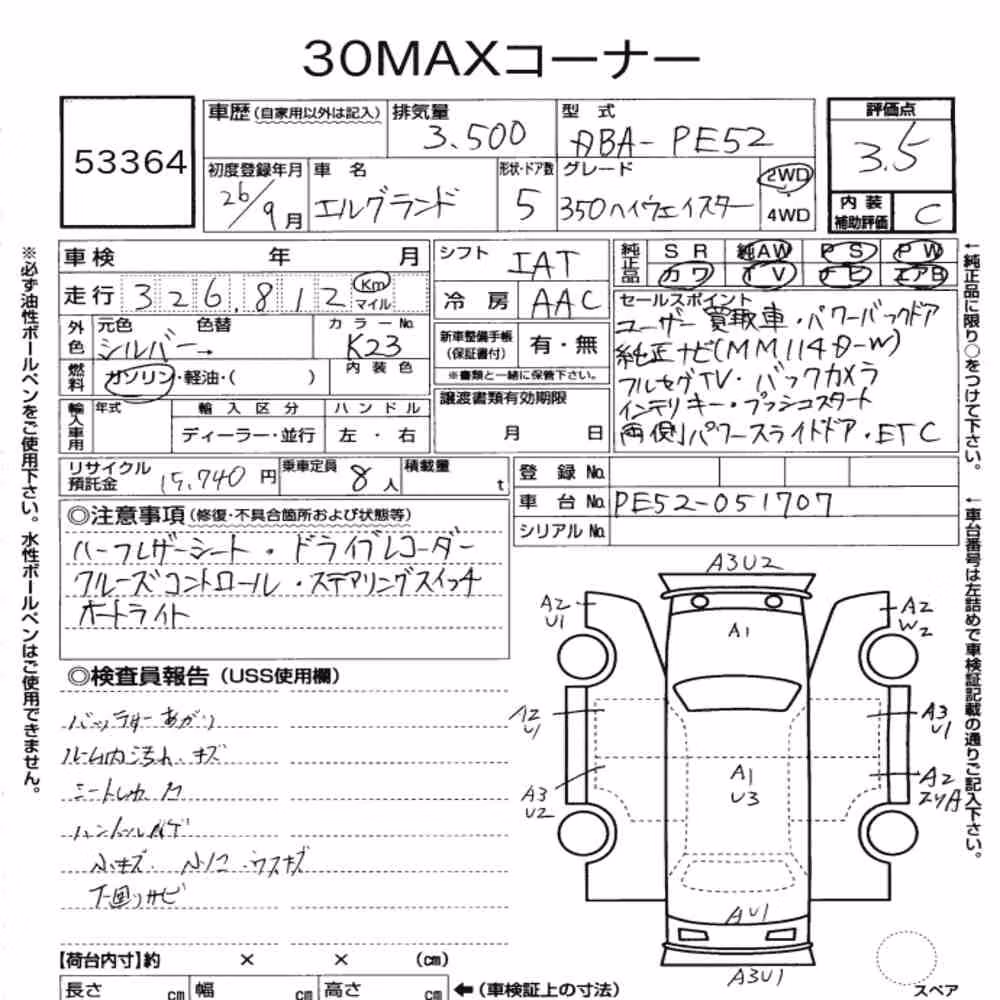 30MAXコーナー
53364
車歴 (自家用以外は記入) 排気量 3.500 型式 ABA-PE52 評価点 3.5
初度登録年月 26/9月 車名 エルグランド 形状・ドア数 5 グレード 350ハイウェイスター 2WD・4WD 内装補助評価 C
車検 年 月 シフト IAT 純正品 SR 純AW PS PW
走行 326,812 Km マイル 冷房 AAC カワ TV ナビ エアB
外色 元色 シルバー→ 色替 カラーNo. K23 新車整備手帳 (保証書付) 有・無 ※書類と一緒に保管下さい。
燃料 ガソリン・軽油・( ) 内装色
輸入車用 年式 輸入区分 ディーラー・並行 ハンドル 左・右 譲渡書類有効期限 月 日
セールスポイント
ユーザー買取車・パワーバックドア
純正ナビ(MM114D-W)
フルセグTV・バックカメラ
インテリキー・プッシュスタート
両側パワースライドドア・ETC
リサイクル預託金 15,740円 乗車定員 8人 積載量 t 登録No.
車台No. PE52-051707
シリアルNo.
◎注意事項 (修復・不具合箇所および状態等)
ハーフレザーシート・ドライブレコーダー
クルーズコントロール・ステアリングスイッチ
オートライト
◎検査員報告 (USS使用欄)
バッテリーあがり
ルーム内汚れ、キズ
シートしわ
ハンドルハゲ
小キズ、小凹、ウスキズ
下回りサビ
A3U2
A2 U1
A1
A2 W2
A2 U1
A3 U1
A1 U3
A3 U2
A2 スリA
AU1
A3U1
スペア
【荷台内寸】約 × × (cm)
長さ cm 幅 cm 高さ cm ←(車検証上の寸法)
※必ず油性ボールペンをご使用下さい。水性ボールペンはご使用できません。
←純正品に限り○をつけて下さい。
←車台番号は左詰めで車検証記載の通りご記入下さい。